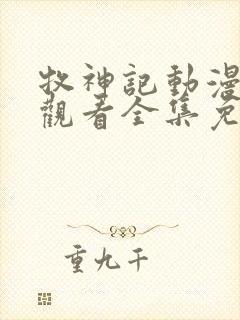 牧神記動漫
觀看全集免
重九千